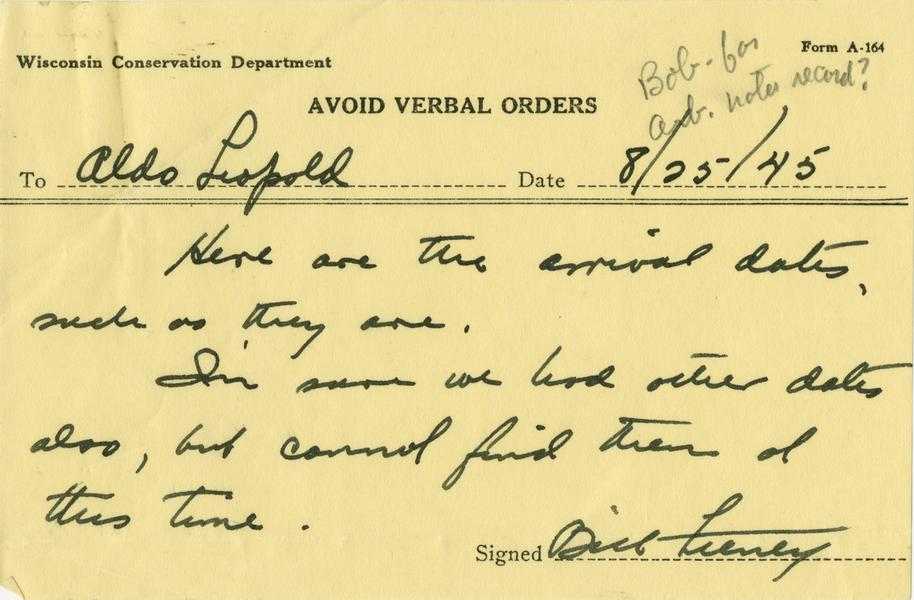 Wisconsin Conservation Department
Form A-164
Bob - for
arb. notes record?
AVOID VERBAL ORDERS
To Aldo Leopold Date 8/25/45
Here are the arrival dates,
such as they are.
I'm sure we had other dates
also, but cannot find them at
this time.
Signed Bill Feeney